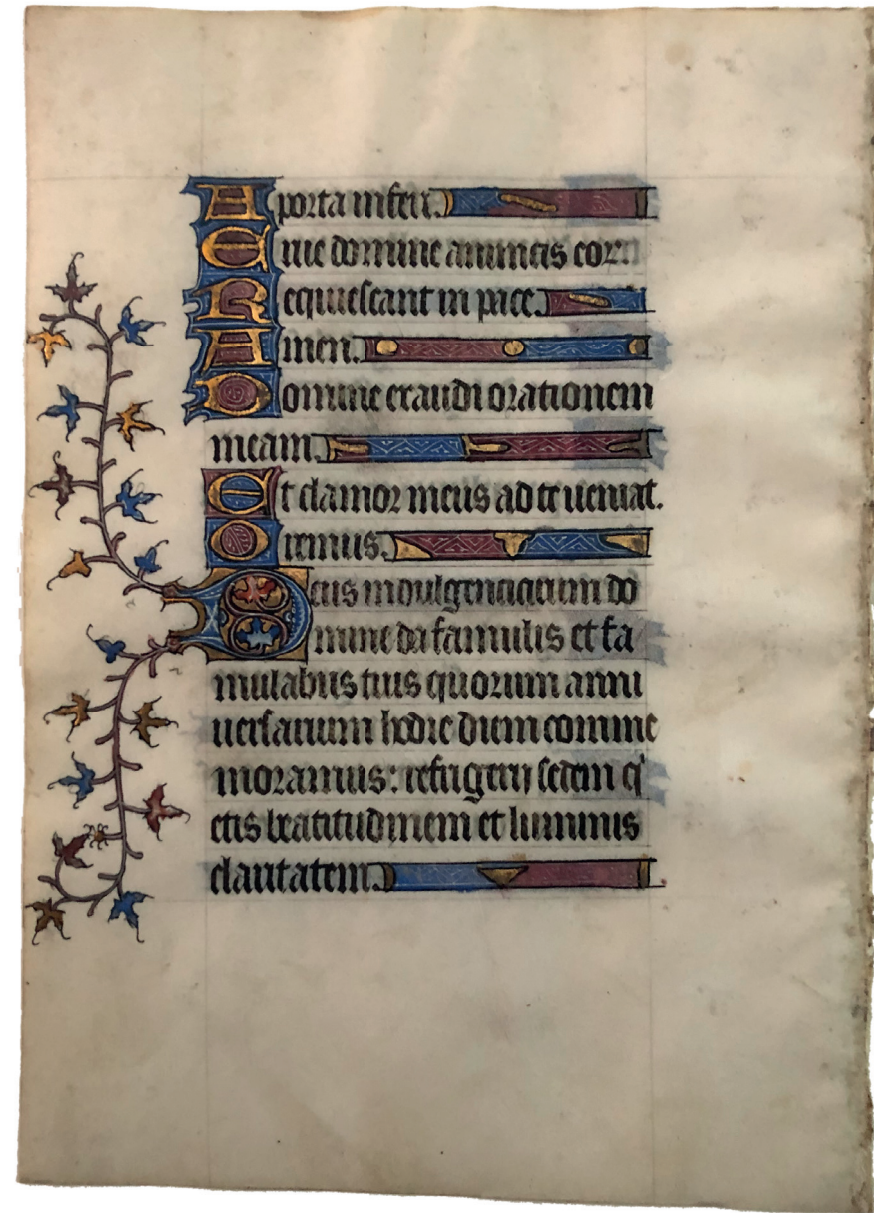 A porta inferi.
Erue domine animas eor
Requiescant in pace.
Amen.
Domine exaudi orationem
meam.
Et clamor meus ad te ueniat.
Oremus.
Deus indulgenciarum do
mine da famulis et fa
mulabus tuis quorum anni
uersarium hodie diem comme
moramus: refrigerij sedem q'
etis beatitudinem et luminis
claritatem.